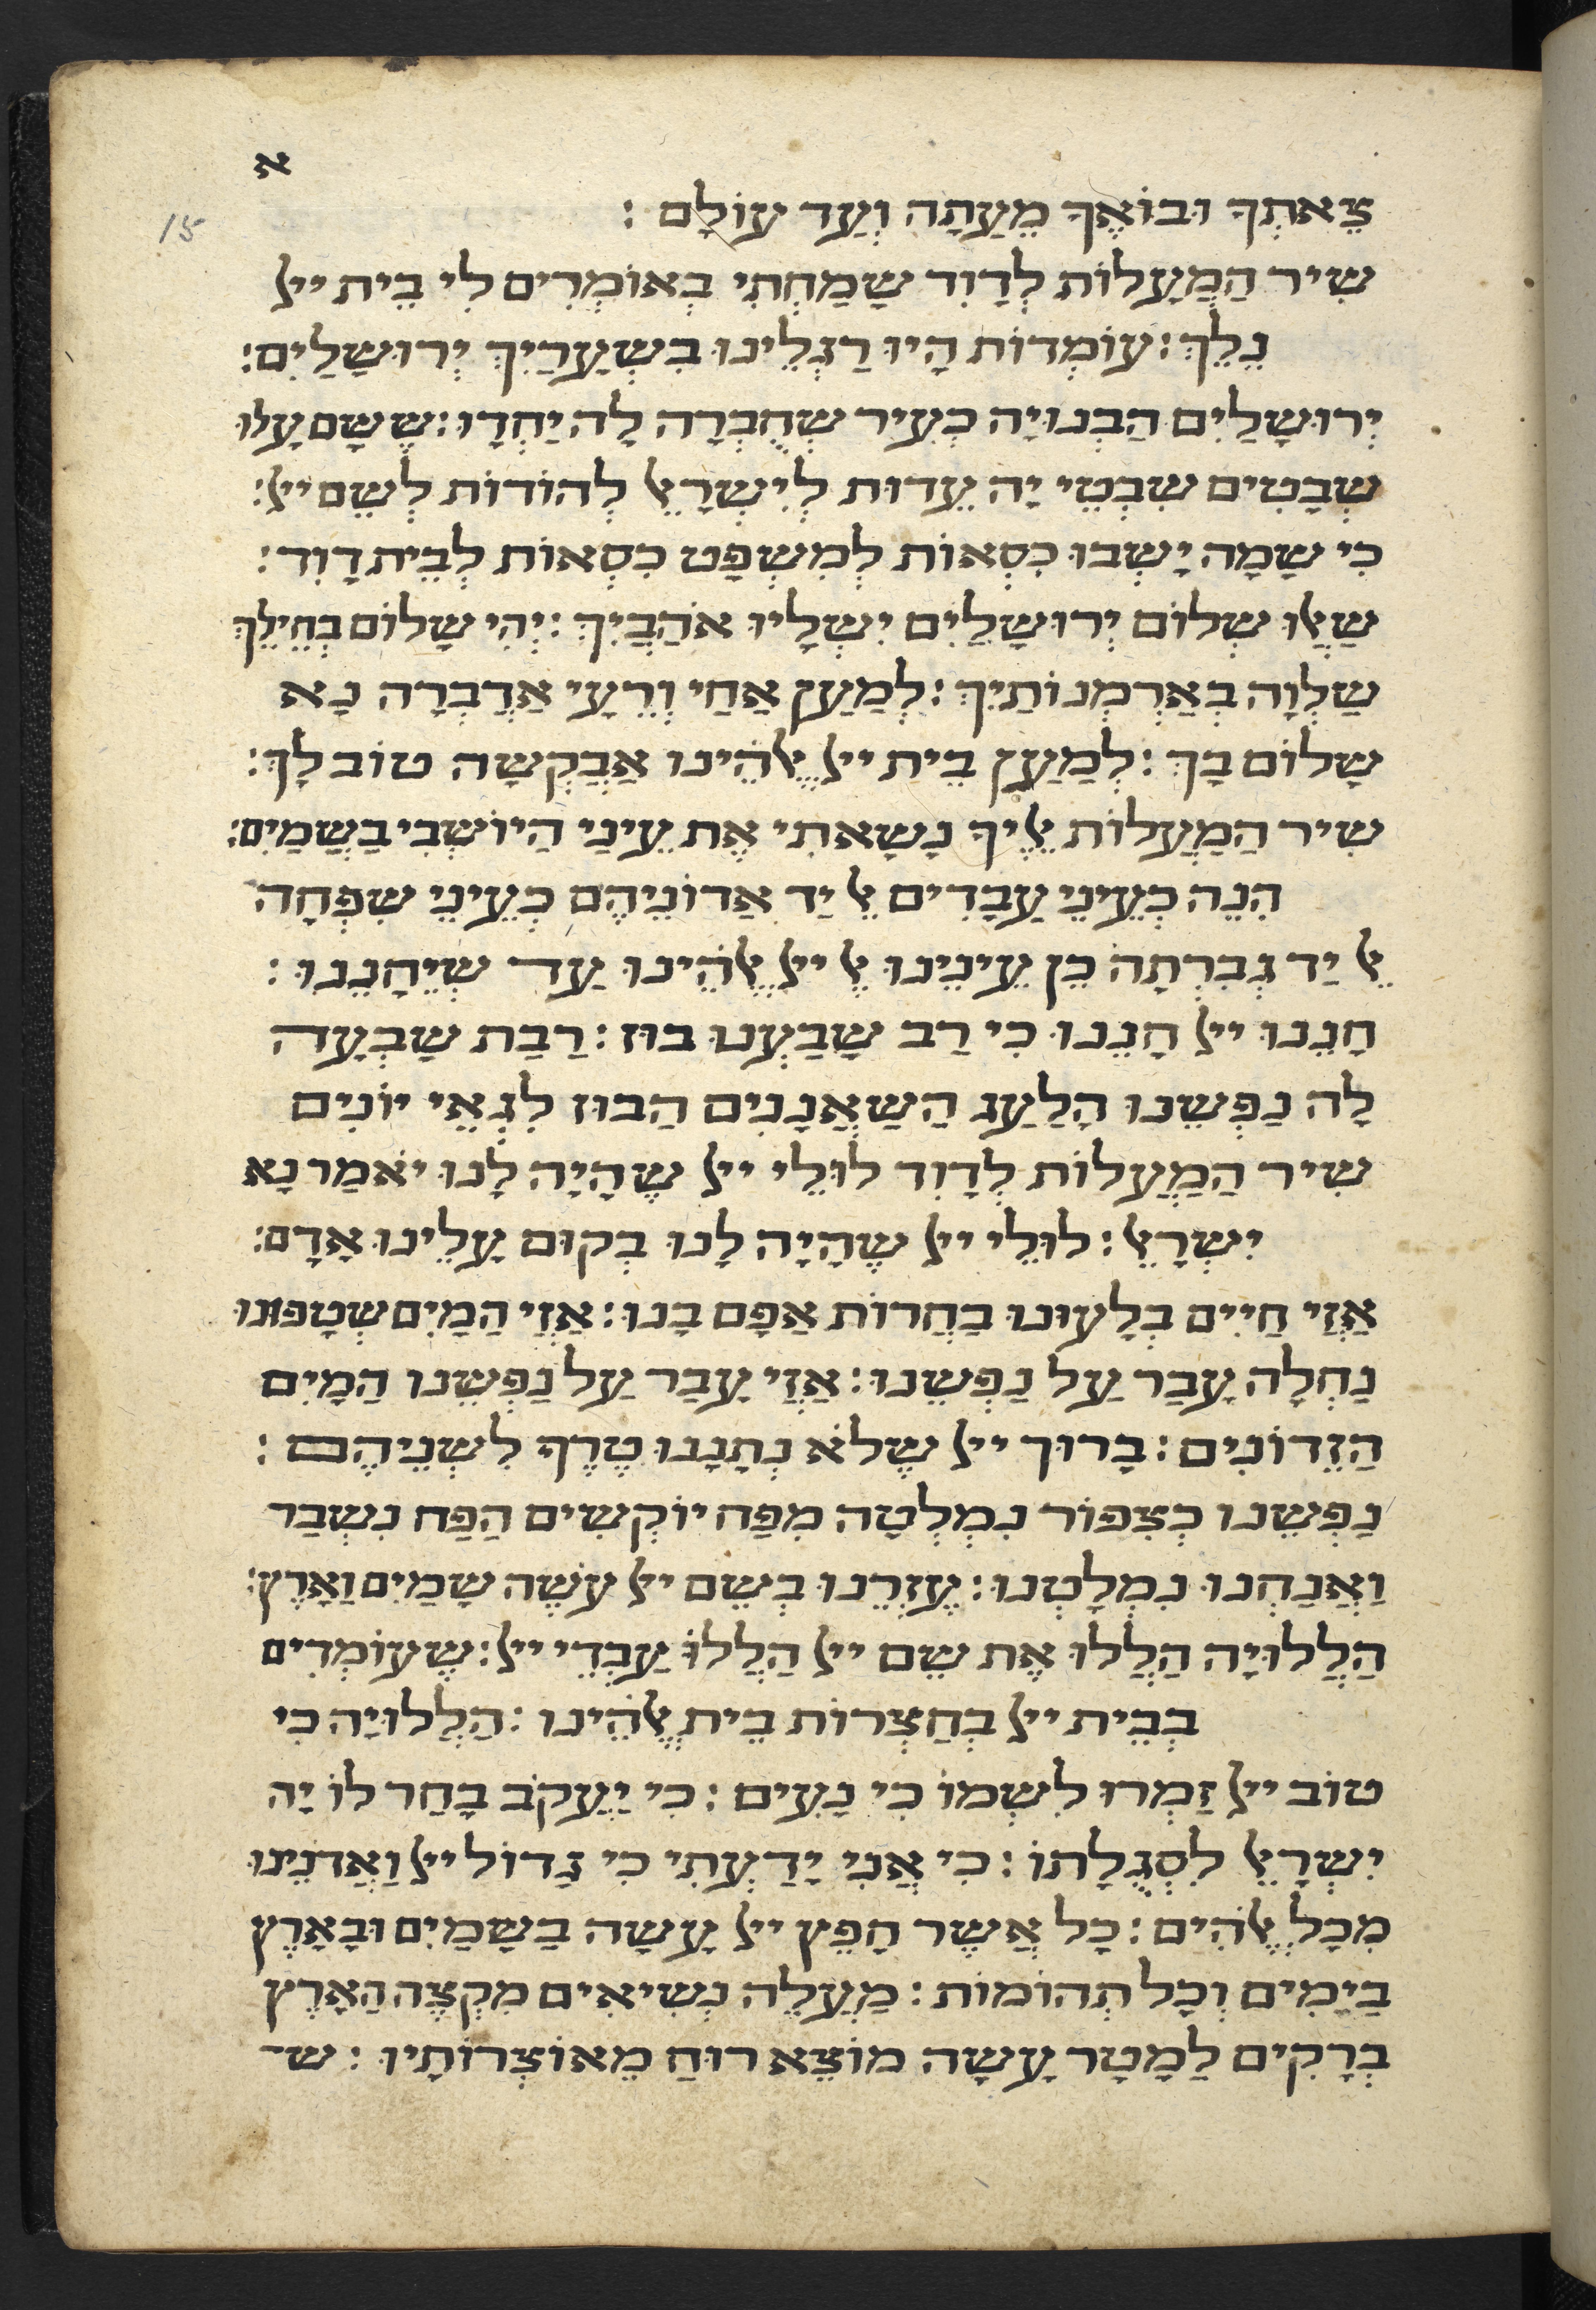 א
15
צֵאתְךָ וּבוֹאֶךָ מֵעַתָה וְעַד עוֹלָם :
שִיר הַמַעֲלוֹת לְדָוִד שָמַחְתִי בְאוֹמְרִים לִי בֵית ייל
נֵלֵךְ : עוֹמְדוֹת הָיוּ רַגְלֵינוּ בִשְעָרַיִךְ יְרוּשָלַיִם :
יְרוּשָלַיִם הַבְנוּיָה כְעִיר שְחֻבְרָה לָה יַחְדָו : שֶשָם עָלוּ
שְבָטִים שִבְטֵי יָה עֵדוּת לְיִשְרָאֵל לְהוֹדוֹת לְשֵם ייל :
כִי שָמָה יָשְבוּ כִסְאוֹת לְמִשְפָט כִסְאוֹת לְבֵית דָוִד :
שַאֲלוּ שְלוֹם יְרוּשָלַיִם יִשְלָיוּ אֹהֲבָיִךְ : יְהִי שָלוֹם בְחֵילֵךְ
שַלְוָה בְאַרְמְנוֹתַיִךְ : לְמַעַן אַחַי וְרֵעָי אֲדַבְרָה נָא
שָלוֹם בָךְ : לְמַעַן בֵית ייל אֱלֹהֵינוּ אֲבַקְשָה טוֹב לָךְ :
שִיר הַמַעֲלוֹת אֵלֶיךָ נָשָאתִי אֶת עֵינַי הַיוֹשְבִי בַשָמָיִם :
הִנֵה כְעֵינֵי עֲבָדִים אֶל יַד אֲדוֹנֵיהֶם כְעֵינֵי שִפְחָה
אֶל יַד גְבִרְתָהּ כֵן עֵינֵינוּ אֶל ייל אֱלֹהֵינוּ עַד שְיֵחָנֵנוּ :
חָנֵנוּ ייל חָנֵנוּ כִי רַב שָבַעְנוּ בוּז : רַבַת שָבְעָה
לָה נַפְשֵנוּ הַלַעַג הַשַאֲנָנִים הַבוּז לִגְאֵי יוֹנִים
שִיר הַמַעֲלוֹת לְדָוִד לוּלֵי ייל שֶהָיָה לָנוּ יֹאמַר נָא
יִשְרָאֵל : לוּלֵי ייל שֶהָיָה לָנוּ בְקוּם עָלֵינוּ אָדָם :
אֲזַי חַיִים בְלָעוּנוּ בַחֲרוֹת אַפָם בָנוּ : אֲזַי הַמַיִם שְטָפוּנוּ
נַחְלָה עָבַר עַל נַפְשֵנוּ : אֲזַי עָבַר עַל נַפְשֵנוּ הַמָיִם
הַזֵדוֹנִים : בָרוּךְ ייל שֶלֹא נְתָנָנוּ טֶרֶף לְשִנֵיהֶם :
נַפְשֵנוּ כְצִפוֹר נִמְלְטָה מִפַח יוֹקְשִים הַפַח נִשְבַר
וַאֲנַחְנוּ נִמְלָטְנוּ : עֶזְרֵנוּ בְשֵם ייל עֹשֶה שָמַיִם וָאָרֶץ :
הַלֲלוּיָה הַלֲלוּ אֶת שֵם ייל הַלֲלוּ עַבְדֵי ייל : שֶעוֹמְדִים
בְבֵית ייל בְחַצְרוֹת בֵית אֱלֹהֵינוּ : הַלֲלוּיָה כִי
טוֹב ייל זַמְרוּ לִשְמוֹ כִי נָעִים : כִי יַעֲקֹב בָחַר לוֹ יָה
יִשְרָאֵל לִסְגֻלָתוֹ : כִי אֲנִי יָדַעְתִי כִי גָדוֹל ייל וַאֲדֹנֵינוּ
מִכָל אֱלֹהִים : כָל אֲשֶר חָפֵץ ייל עָשָה בַשָמַיִם וּבָאָרֶץ
בַיַמִים וְכָל תְהוֹמוֹת : מַעֲלֶה נְשִיאִים מִקְצֶה הָאָרֶץ
בְרָקִים לַמָטָר עָשָה מוֹצֵא רוּחַ מֵאוֹצְרוֹתָיו : ש־